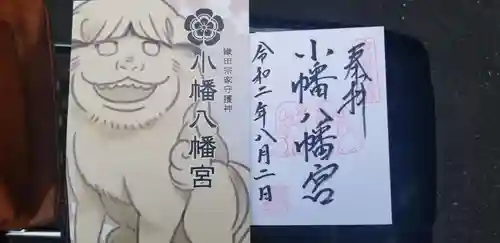 織田宗家守護神
小幡八幡宮
奉拝
小幡八幡宮
令和二年八月二日